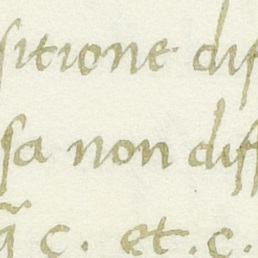 sitione dif
sa non diff
q̃ c. et. c.